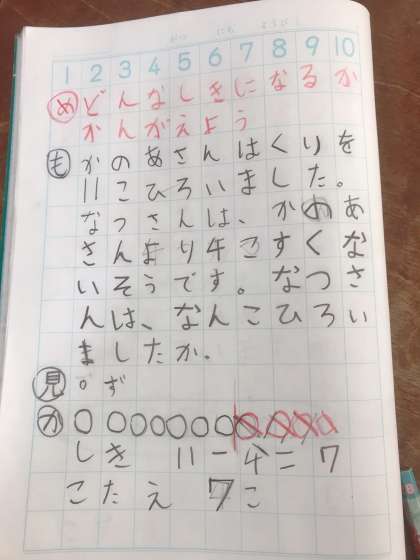 がつ にち ようび
1 2 3 4 5 6 7 8 9 10
め どんなしきになるか
かんがえよう
も かのあさんはくりを
11こひろいました。
なつさんは、かのあ
さんより4こすくな
いそうです。なつさ
んは、なんこひろい
ましたか。
見 。ず
か ○○○○○○○○○○○
しき 11-4=7
こたえ 7こ